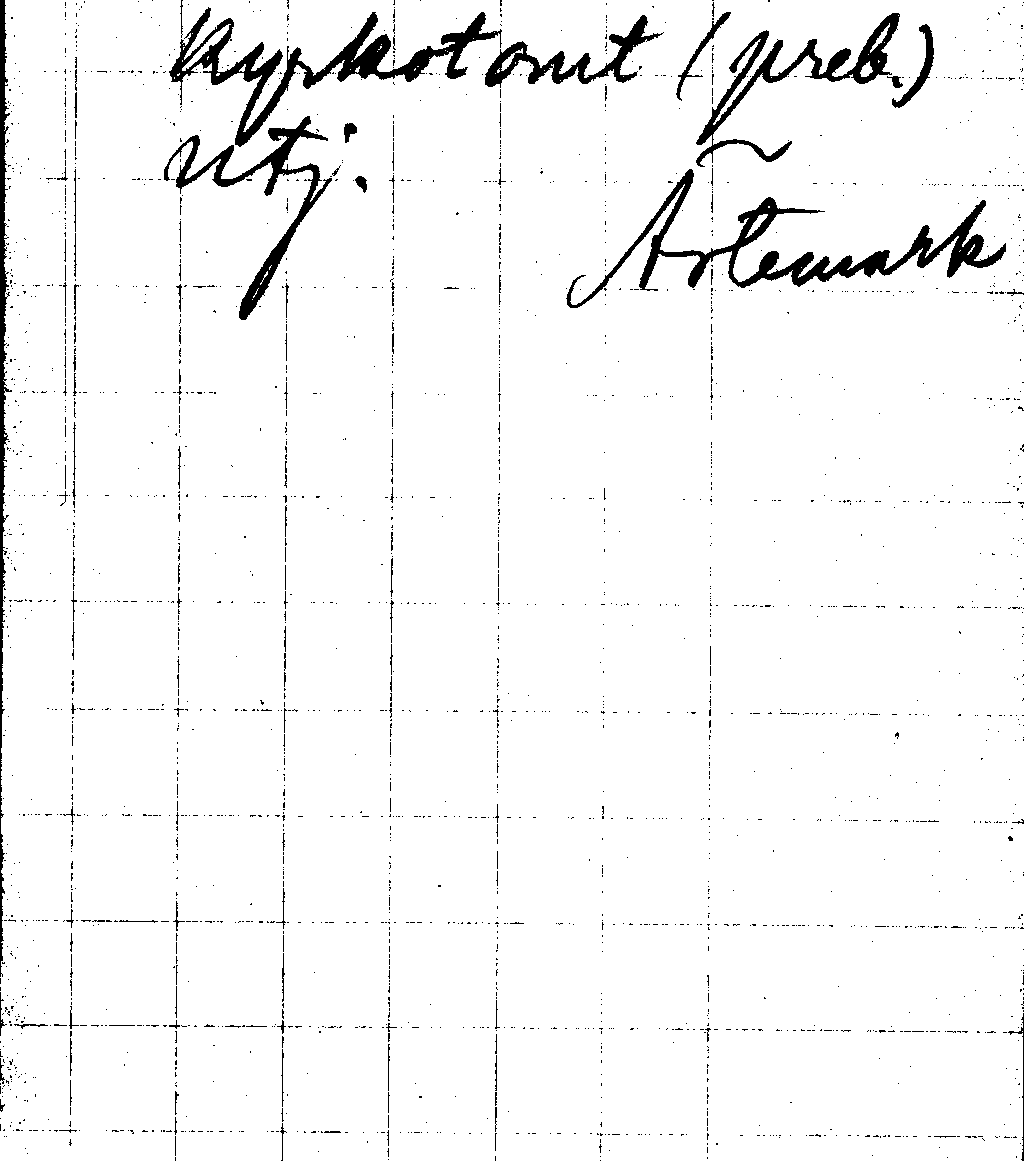 kyrkotomt (preb.)
utj.
Ärtemark